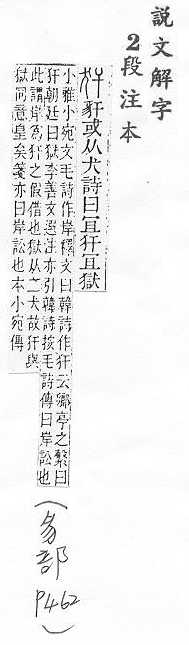 說文解字
2段注本
豻或从犬詩曰宜犴宜獄
小雅小宛文毛詩作岸釋文曰韓詩作犴云鄉亭之繫曰
犴朝廷曰獄李善文選注亦引韓詩按毛詩傳曰岸訟也
此謂岸為犴之假借也獄从二犬故犴與
獄同意皇矣箋亦曰岸訟也本小宛傳
(豸部 P462)